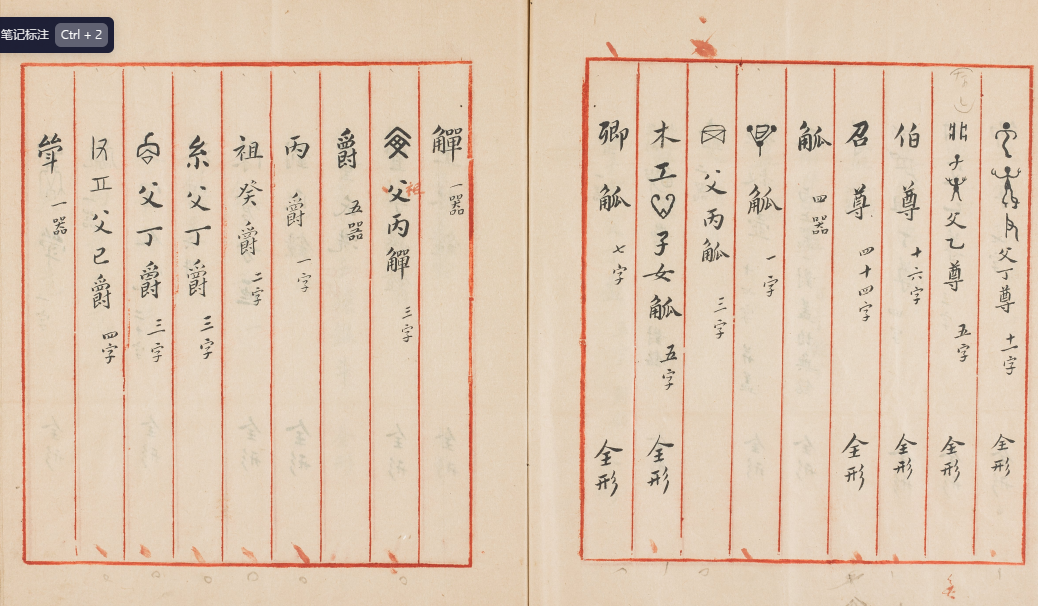 笔记标注 Ctrl + 2
父丁尊 十一字 全形
子 父乙尊 五字 全形
伯尊 十六字 全形
召尊 四十四字 全形
觚 四器
觚 一字
父丙觚 三字
木工 子女觚 五字 全形
卿觚 七字 全形
觶 一器
父丙觶 三字
爵 五器
丙爵 一字
祖癸爵 二字
糸父丁爵 三字
父丁爵 三字
父己爵 四字
斝 一器